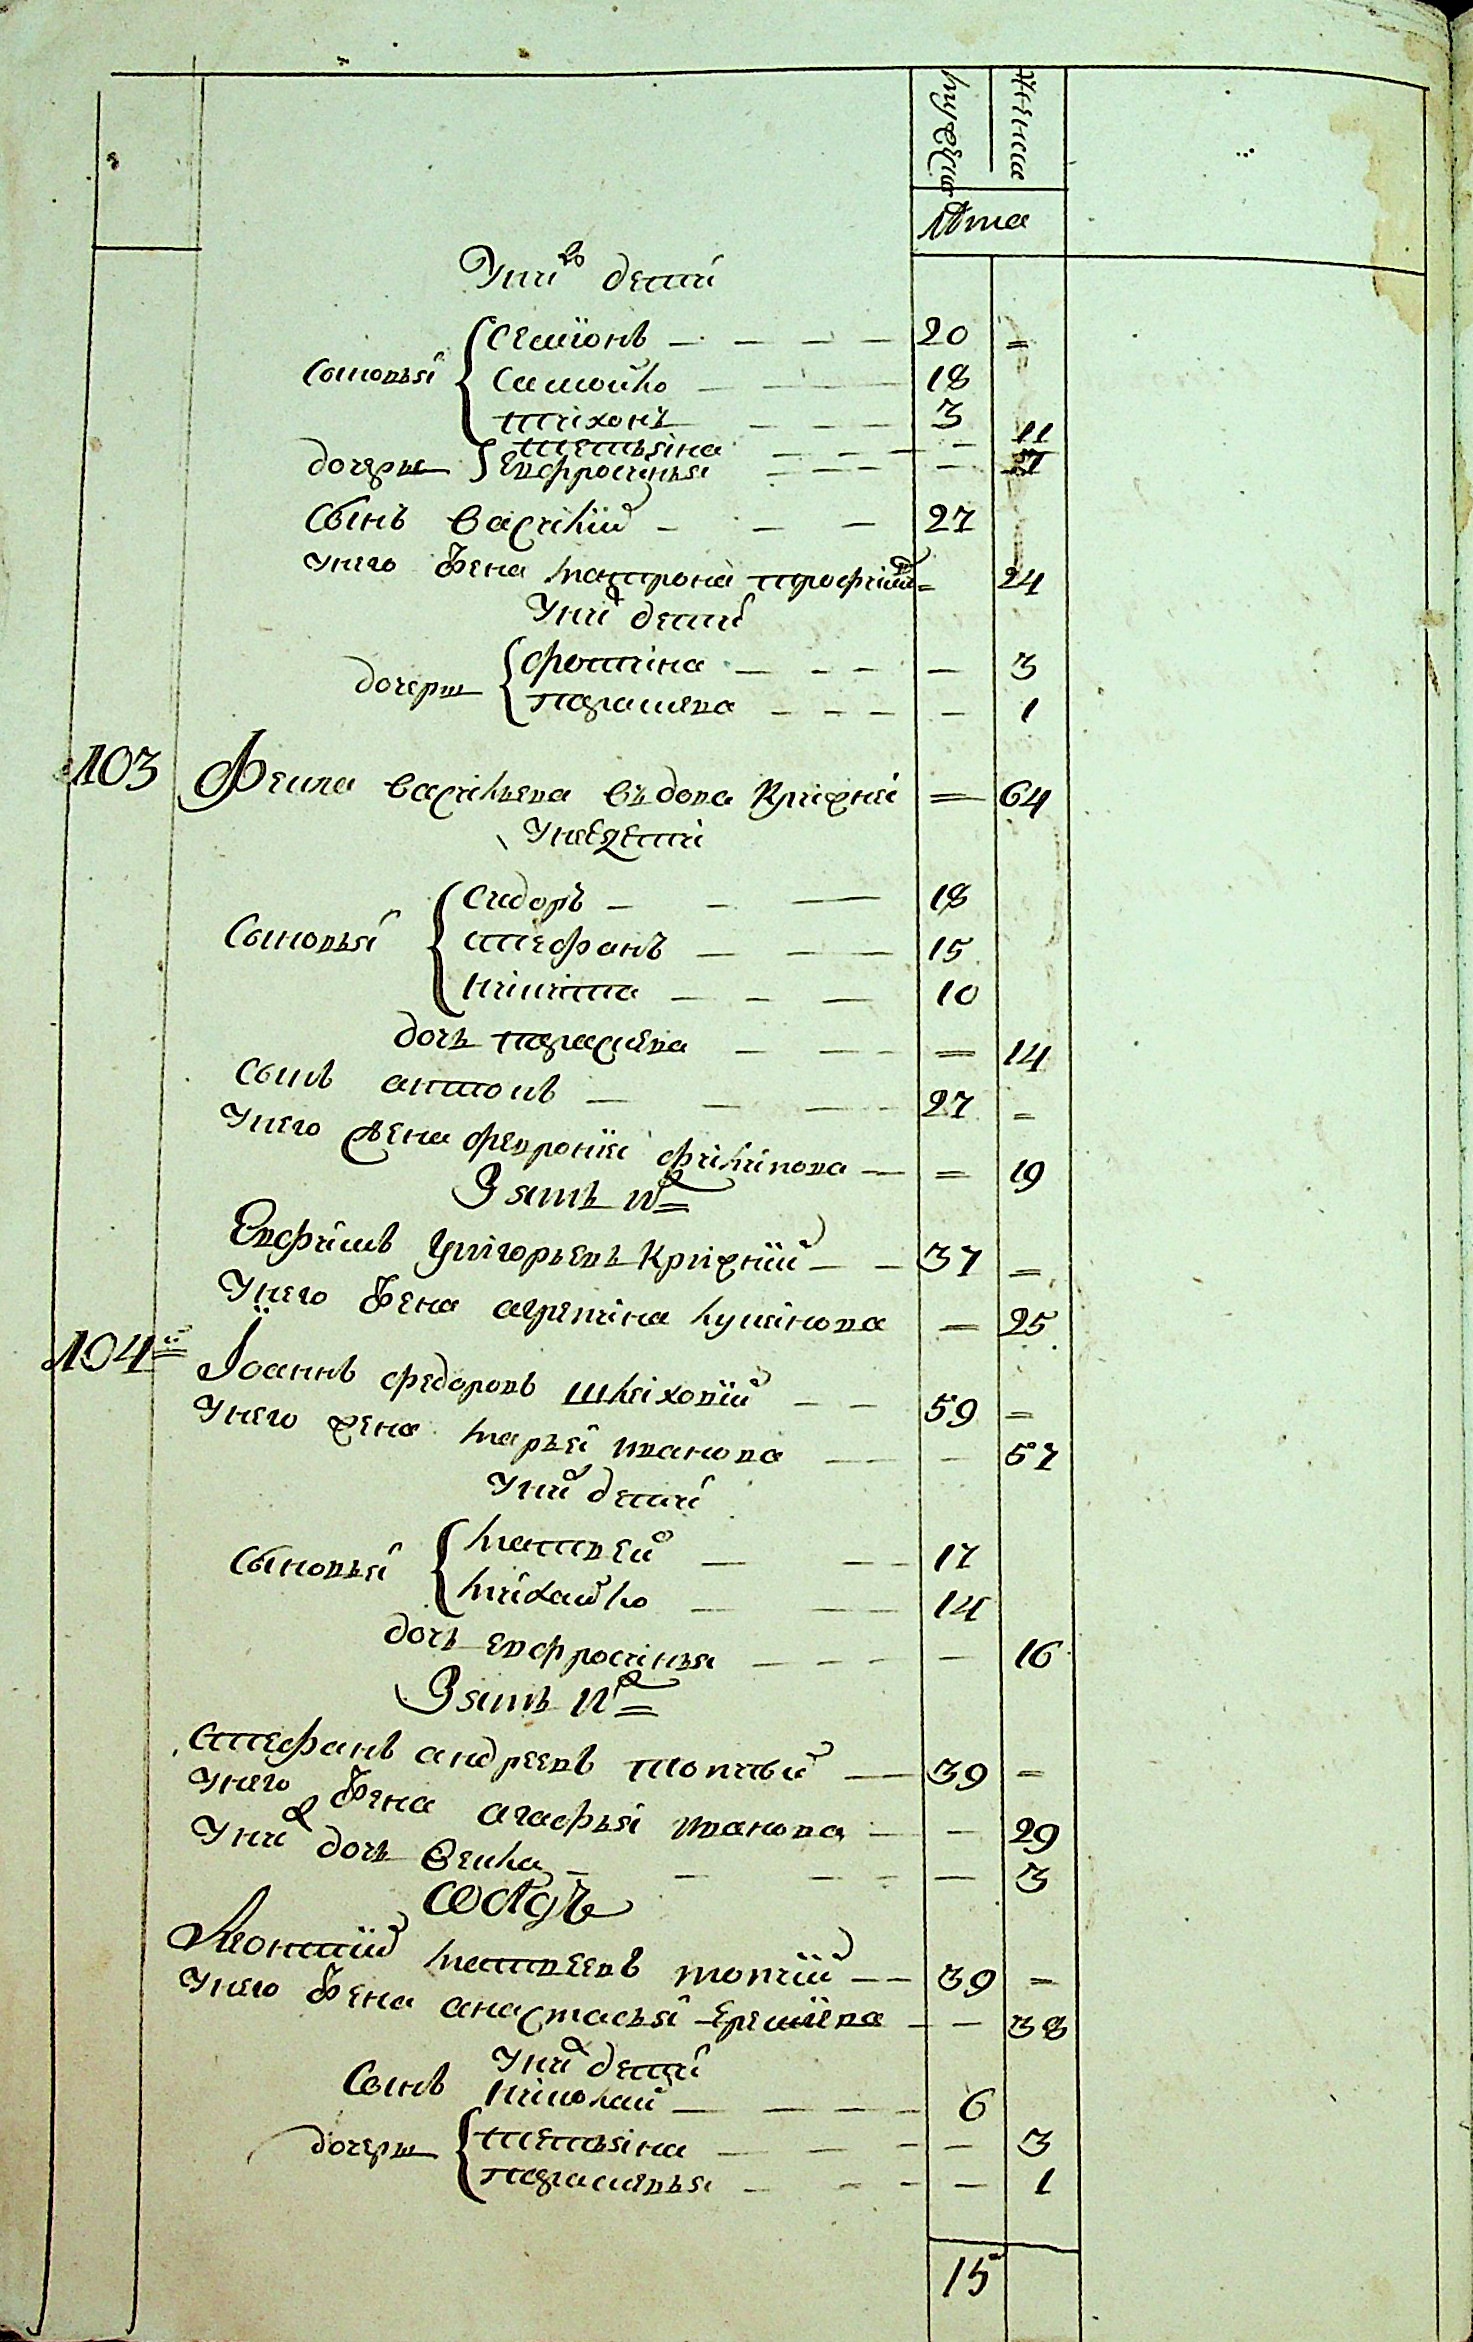 мужеска женска
лѣта
У них дети
Сыновья
Семіонъ 20 =
Самойло 18
Тихонъ 3
дочери
Татьяна — 11
Евфросинья — 7
Сынъ Василій 27
У него жена Матрона Трофим = 24
У них дети
дочери
Фотина — 3
Парасцева — 1
103 Фекла Василіева въдова = 64
У нее дети
Сыновья
Сидоръ 18
Стефанъ 15
Никита 10
дочь Парасцева = 14
Сынъ Антонъ 27 =
У него жена Февронія Филипова = 19
Зять их =
Евфимъ Григорьевъ 37 =
У него жена Агрепина = 25
104 Іоаннъ Федоровъ 59 =
У него жена Марья Иванова — 57
У них дети
Сыновья
Матвей 17
Михайло 14
дочь Евфросинья — 16
Зять их =
Стефанъ Андреевъ 39 =
У него жена Агафья Иванова — 29
У них дочь — 3
сосѣдъ
Леонтій Матвеевъ 39 =
У него жена Анастасья Еремиева — 38
У них дети
Сынъ Николай 6
дочери
Татьяна — 3
Парасцевья — 1
15